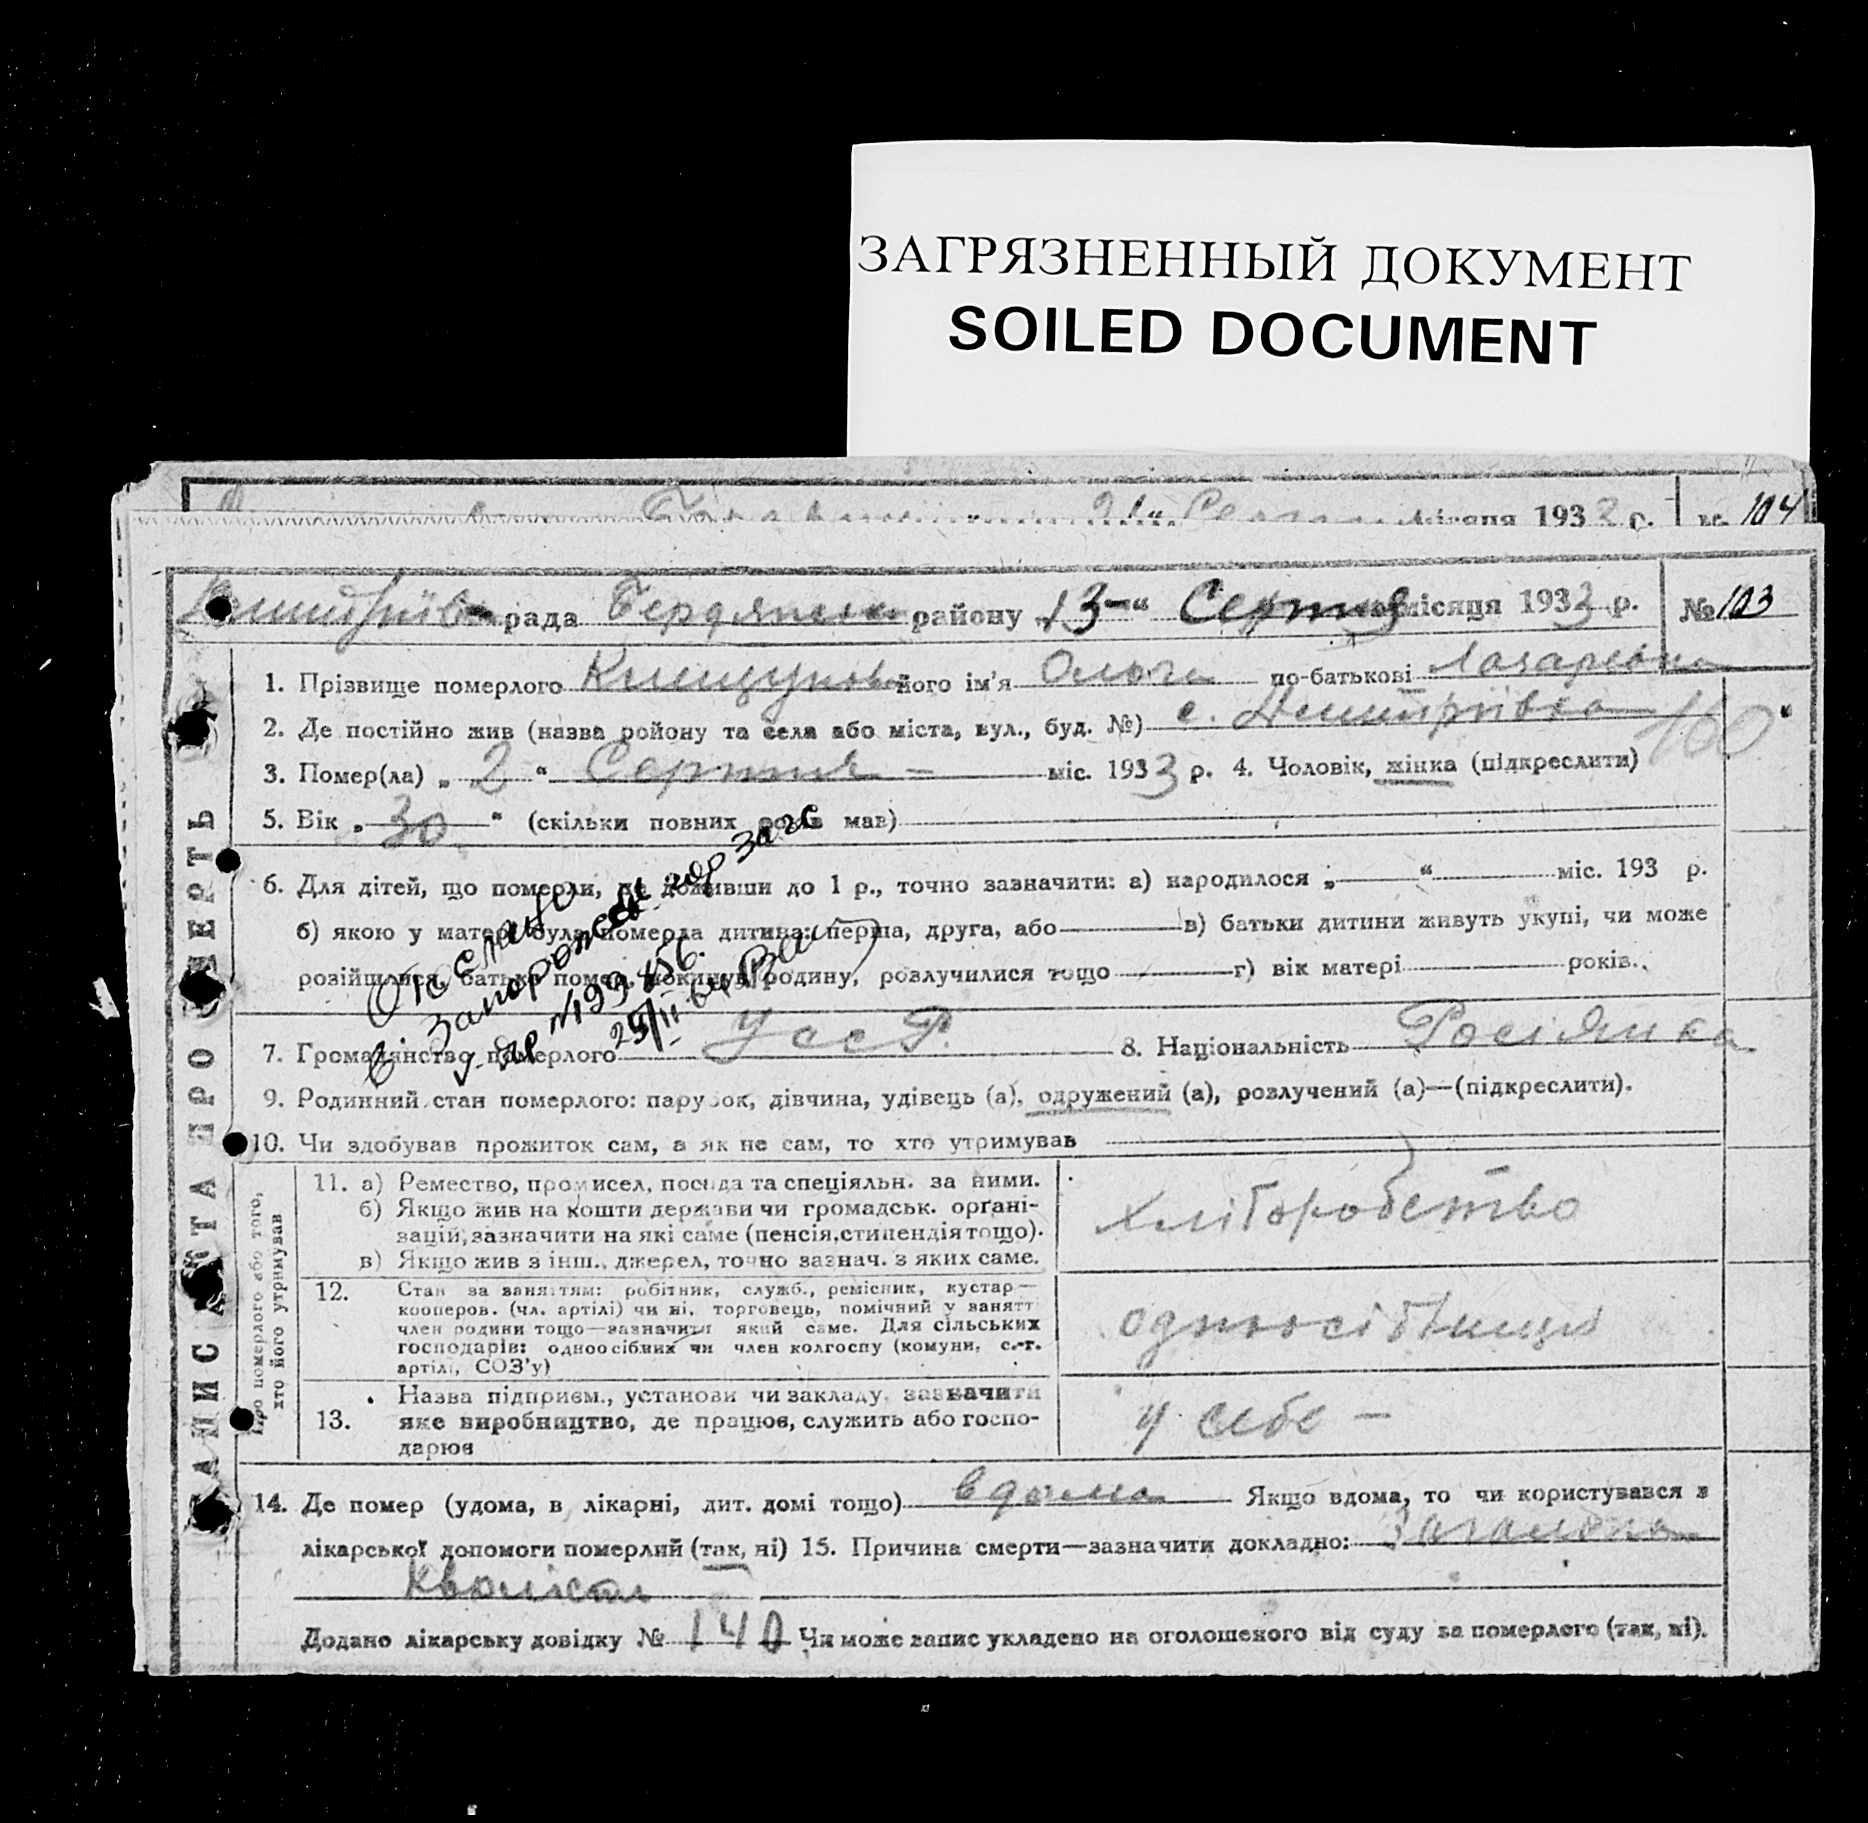 ЗАГРЯЗНЕННЫЙ ДОКУМЕНТ
SOILED DOCUMENT
місяця 193 р. № 104
рада район 13 Серпня місяця 1933 р. № 103
ЗАПИС АКТА ПРО СМЕРТЬ
1. Прізвище померлого його ім'я Ольга по-батькові Лазаревна
2. Де постійно жив (назва ройону та села або міста, вул., буд. №) с. Дмитрівка 160
3. Помер(ла) „ 2 “ Серпня — міс. 1933 р. 4. Чоловік, жінка (підкреслити)
5. Вік „ 30 “ (скільки повних років мав)
6. Для дітей, що померли, не доживши до 1 р., точно зазначити: а) народилося „ “ міс. 193 р.
б) якою у матері була померла дитина: перша, друга, або в) батьки дитини живуть укупі, чи може
розійшлися, батько помер, покинув родину, розлучилися тощо г) вік матері років.
Отослано
в. Запорожский гор загс
25/II
7. Громадянство померлого УССР. 8. Національність Росіянка
9. Родинний стан померлого: парубок, дівчина, удівець (а), одружений (а), розлучений (а)—(підкреслити).
10. Чи здобував прожиток сам, а як не сам, то хто утримував
Про померлого або того,
хто його утримував
11. а) Ремество, промисел, посада та спеціяльн. за ними.
б) Якщо жив на кошти держави чи громадськ. орґані-
зацій, зазначити на які саме (пенсія, стипендія тощо).
в) Якщо жив з інш., джерел, точно зазнач. з яких саме.
хліборобство
12. Стан за заняттям: робітник, служб., ремісник, кустар—
кооперов. (чл. артілі) чи ні, торговець, помічний у занятт
член родини тощо—зазначити який саме. Для сільських
господарів: одноосібник чи член колгоспу (комуни, с.-г.
артілі, СОЗ'у)
13. Назва підприєм., установи чи закладу, зазначити
яке виробництво, де працює, служить або госпо-
дарює
у себе —
14. Де помер (удома, в лікарні, дит. домі тощо) вдома Якщо вдома, то чи користувався з
лікарської допомоги померлий (так, ні) 15. Причина смерти—зазначити докладно: Загальна
кволість
Додано лікарську довідку № 140 Чи може запис укладено на оголошеного від суду за померлого (так, ні).